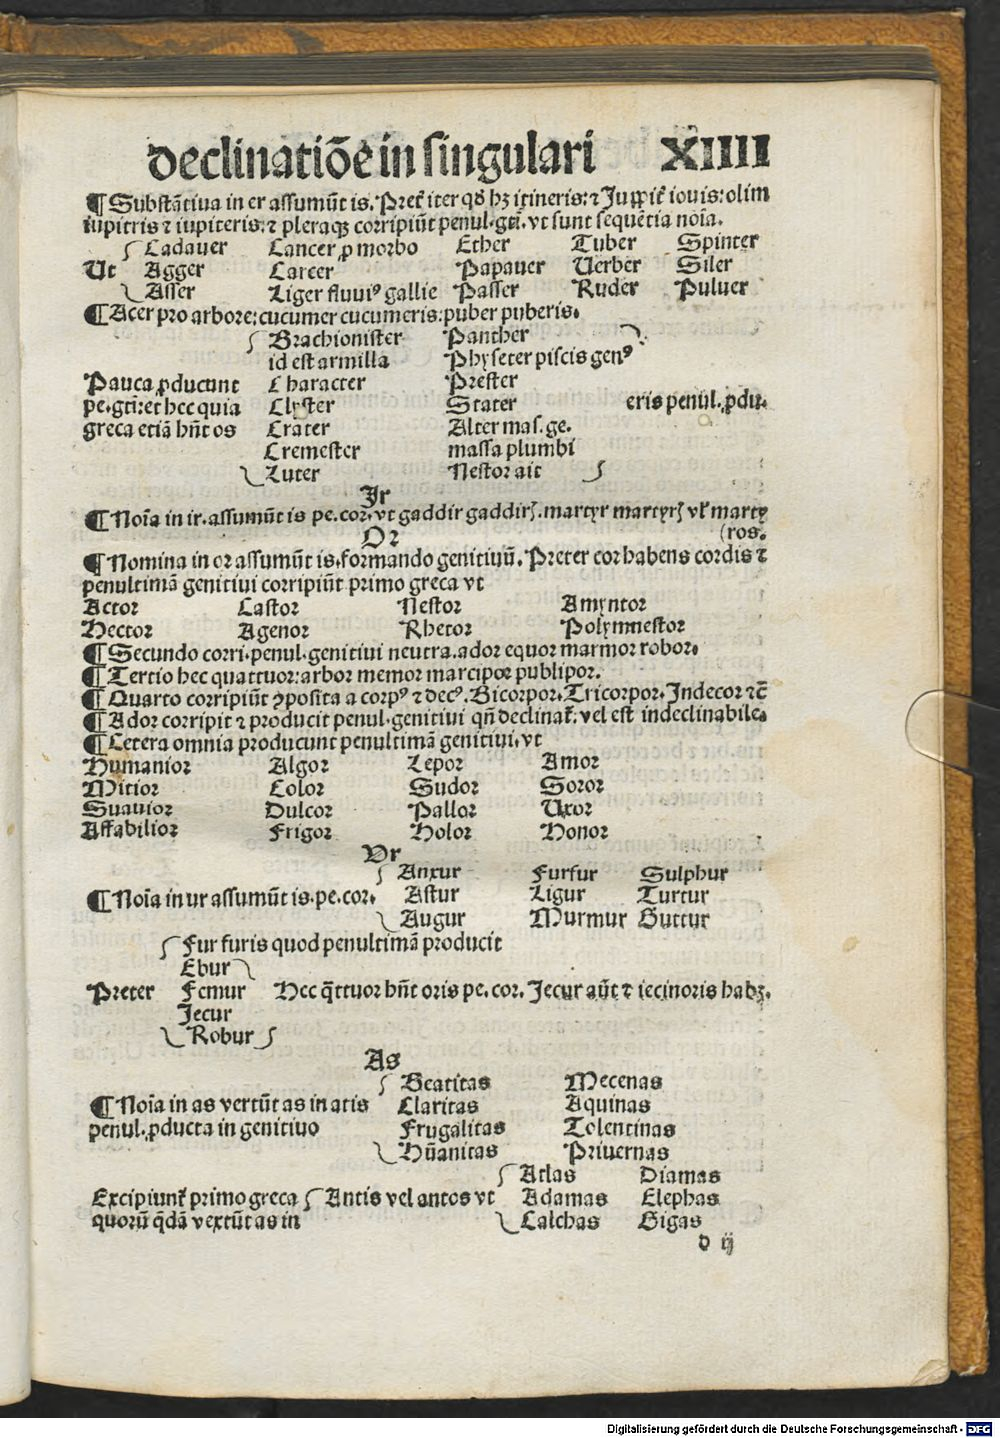 declinatiōe in singulari XIIII
¶ Substātiua in er assumūt is. Pret̄ iter qđ hꝫ itineris: ⁊ Juppit̄ iouis: olim
iupitris ⁊ iupiteris: ⁊ pleraqꝫ corripiūt penul. gtī. vt sunt sequētia noīa.
Cadauer Cancer ꝓ morbo Ether Tuber Spinter
Ut Agger Carcer Papauer Uerber Siler
Asser Liger fluuiꝰ gallie Passer Ruder Puluer
¶ Acer pro arbore: cucumer cucumeris: puber puberis.
Brachionister Panther
id est armilla Physeter piscis genꝰ
Pauca ꝓducunt Character Prester
pe. gtī: et hec quia Clyster Stater eris penul. ꝓdu.
greca etiā hn̄t os Crater Alter mas. ge.
Cremester massa plumbi
Luter Nestor ait
Jr
¶ Noīa in ir. assumūt is pe. cor. vt gaddir gaddirꝭ. martyr martyrꝭ vl̄ marty
(ros.
Or
¶ Nomina in or assumūt is. formando genitiuū. Preter cor habens cordis ⁊
penultimā genitiui corripiūt primo greca vt
Actor Castor Nestor Amyntor
Hector Agenor Rhetor Polymnestor
¶ Secundo corri. penul. genitiui neutra. ador equor marmor robor.
¶ Tertio hec quattuor: arbor memor marcipor publipor.
¶ Quarto corripiūt ꝯposita a corpꝰ ⁊ decꝰ. Bicorpor. Tricorpor. Indecor ⁊c̄
¶ Ador corripit ⁊ producit penul. genitiui qn̄ declinat̄: vel est indeclinabile.
¶ Cetera omnia producunt penultimā genitiui. vt
Humanior Algor Lepor Amor
Mitior Color Sudor Soror
Suauior Dulcor Pallor Uxor
Affabilior Frigor Holor Honor
Vr
Anxur Furfur Sulphur
¶ Noīa in ur assumūt is. pe. cor. Astur Ligur Turtur
Augur Murmur Guttur
Fur furis quod penultimā producit
Ebur
Preter Femur Hec q̄ttuor hn̄t oris pe. cor. Jecur aūt ⁊ iecinoris habꝫ.
Jecur
Robur
As
Beatitas Mecenas
¶ Noīa in as vertūt as in atis Claritas Aquinas
penul. ꝓducta in genitiuo Frugalitas Tolentinas
Hūanitas Priuernas
Atlas Diamas
Excipiunt̄ primo greca Antis vel antos vt Adamas Elephas
quorū q̄dā vertūt as in Calchas Gigas
d ij
Digitalisierung gefördert durch die Deutsche Forschungsgemeinschaft - DFG